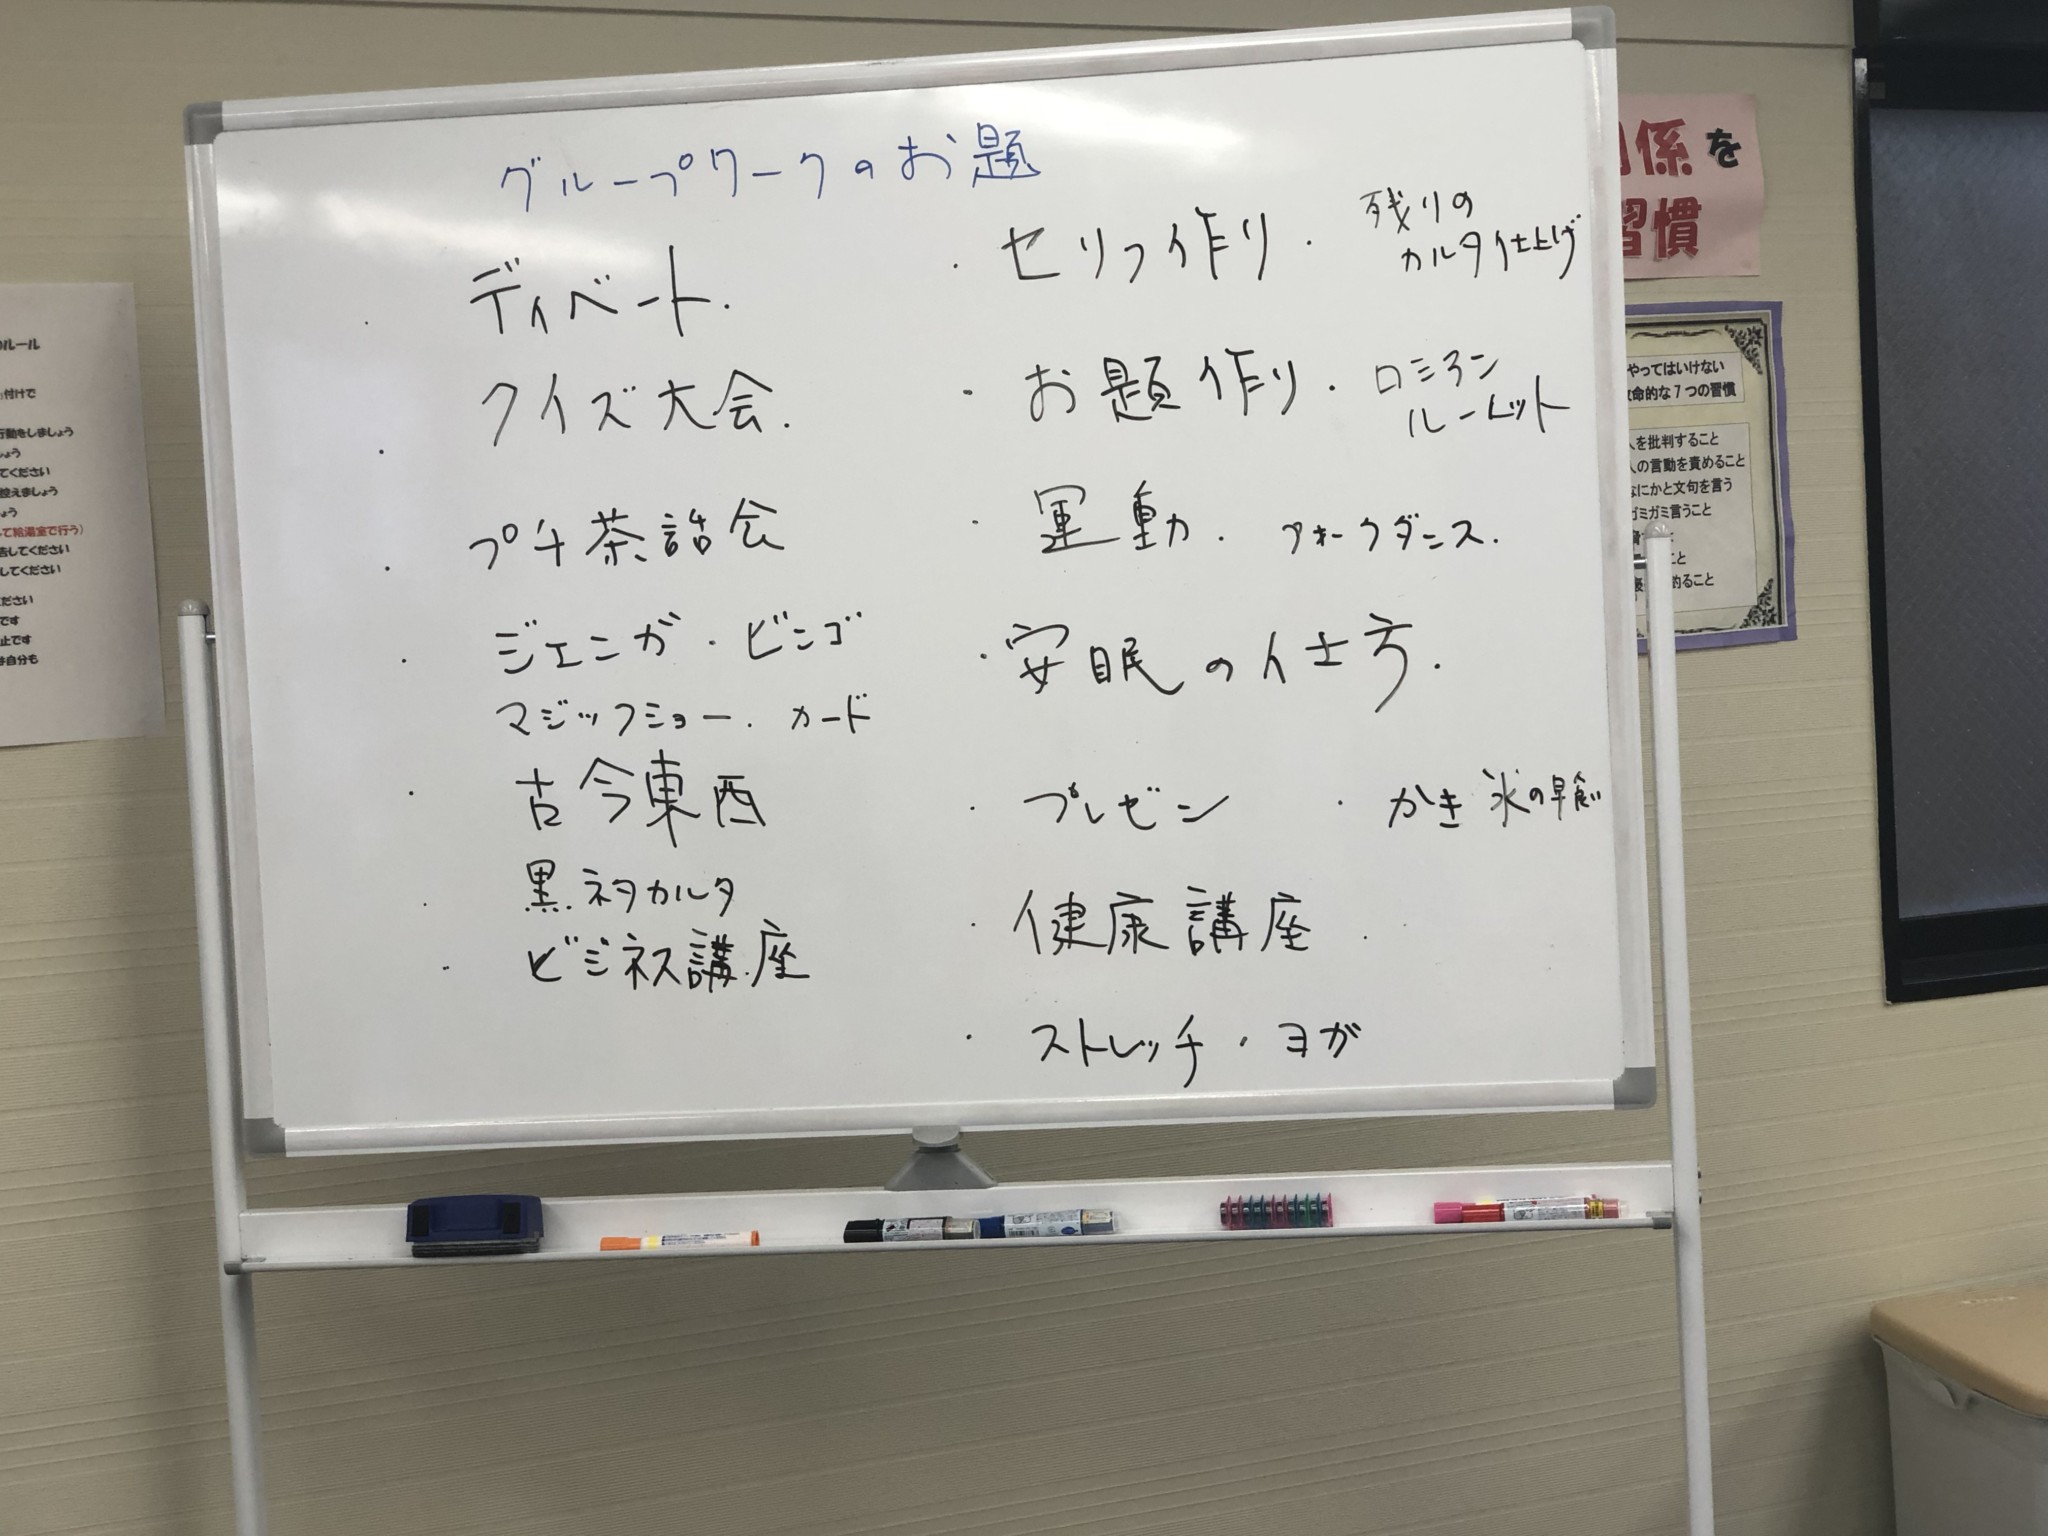 グループワークのお題
ディベート.
クイズ大会.
プチ茶話会
ジェンガ・ビンゴ
マジックショー. カード
古今東西
黒ネタカルタ
ビジネス講座
・セリフ作り・
残りの
カルタ仕上げ
・お題作り・
ロシアン
ルーレット
・運動. フォークダンス.
・安眠の仕方.
・プレゼン
・かき氷の早食い
・健康講座
・ストレッチ・ヨガ
のルール
付けで
行動をしましょう
しょう
てください
控えましょう
ょう
して給湯室で行う)
告してください
してください
ださい
です
止です
は自分も
係を
習慣
やってはいけない
致命的な7つの習慣
人を批判すること
人の言動を責めること
なにかと文句を言う
ガミガミ言うこと
こと
的ること